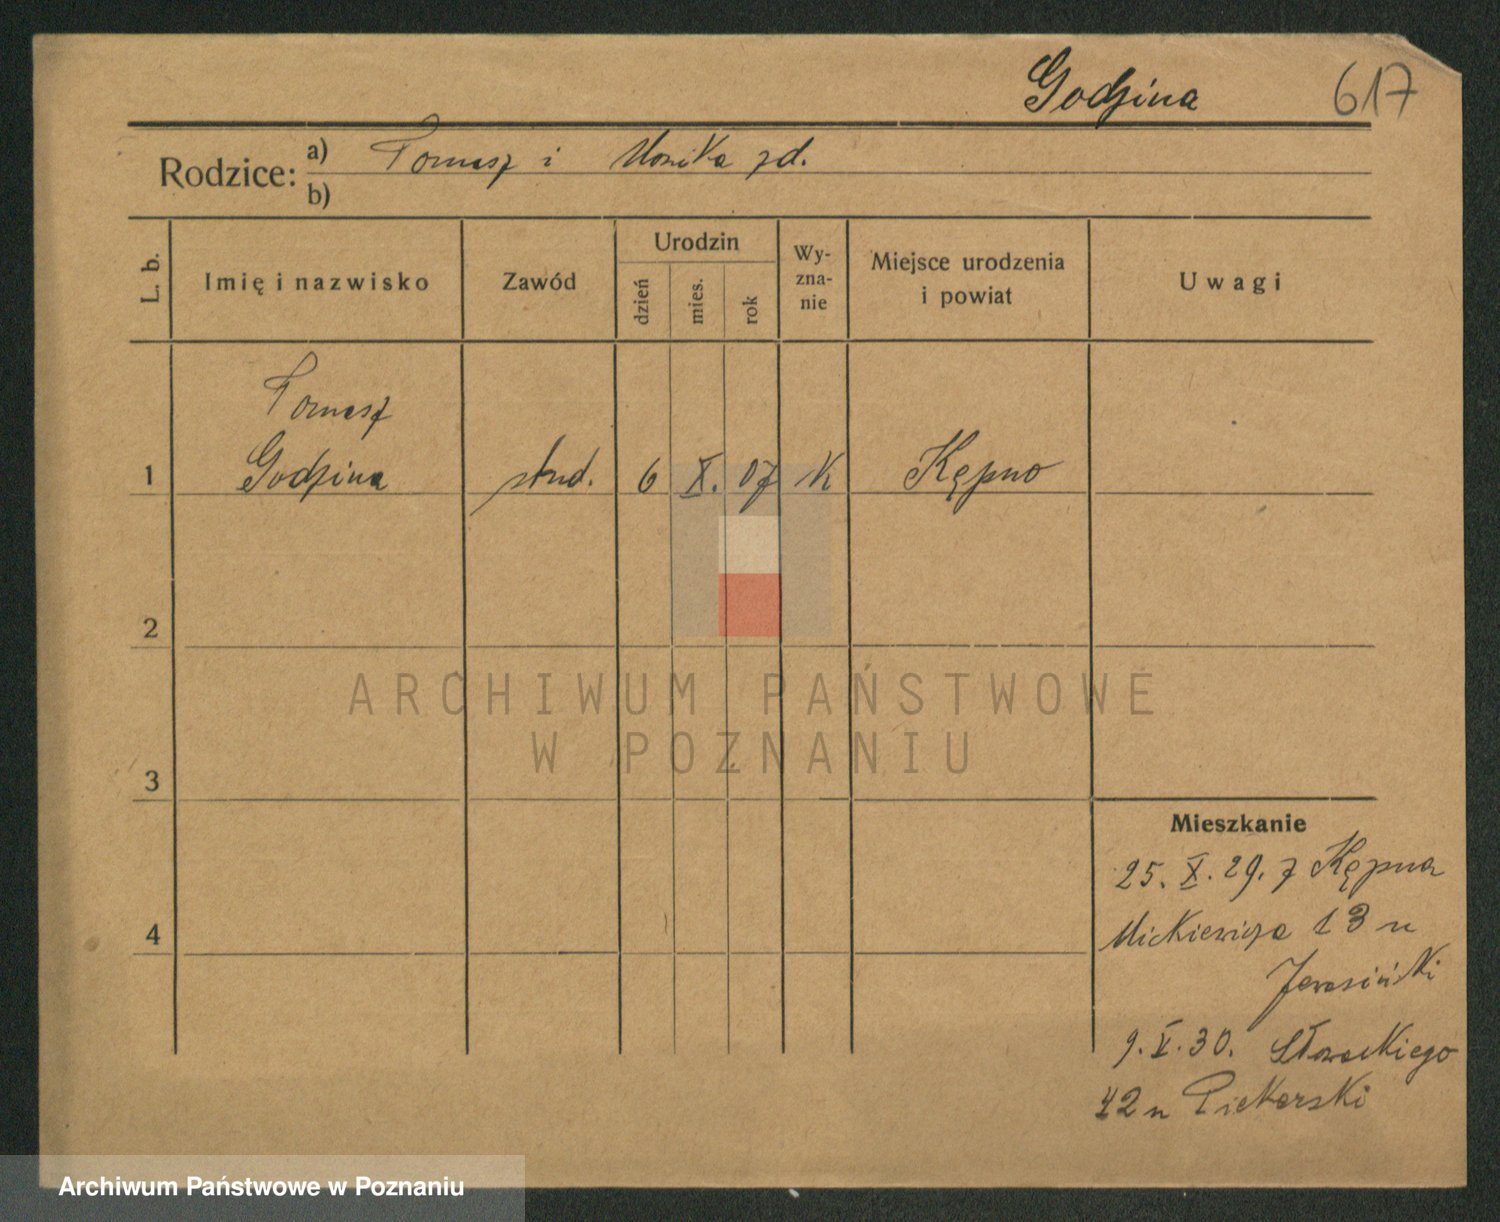 Godzina 617
Rodzice: a) Tomasz i Monika zd.
b)
L. b. Imię i nazwisko Zawód Urodzin dzień mies. rok Wy-zna-nie Miejsce urodzenia i powiat Uwagi
Tomasz
1 Godzina stud. 6 X. 07 K Kępno
2
ARCHIWUM PAŃSTWOWE
W POZNANIU
3
Mieszkanie
25. X. 29. z Kępna
4 Mickiewicza 13 u
Jerosiński
9. V. 30. Słowackiego
42 u Piekarski
Archiwum Państwowe w Poznaniu